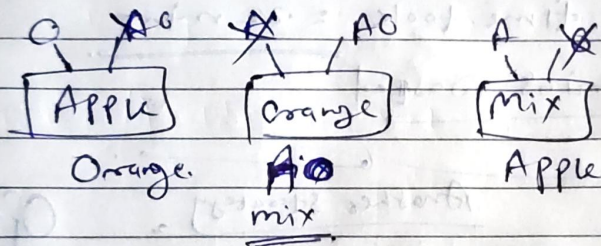 O AO A AO A O
Apple Orange Mix
Orange. Apple
mix